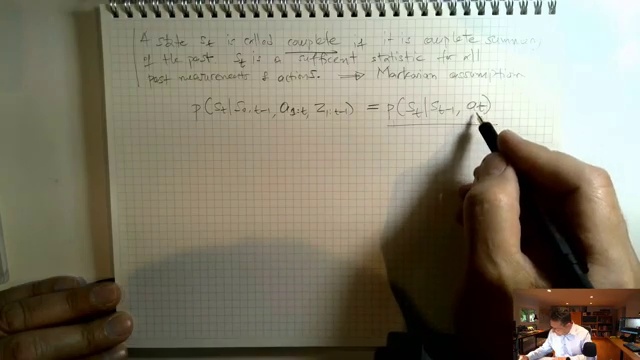 A state St is called complete if it is complete summary
of the past St is a sufficient statistic for all
past measurements & actions. ⟹ Markovian assumption
p(St | S0:t-1, a1:t, Z1:t-1) = p(St | St-1, at)